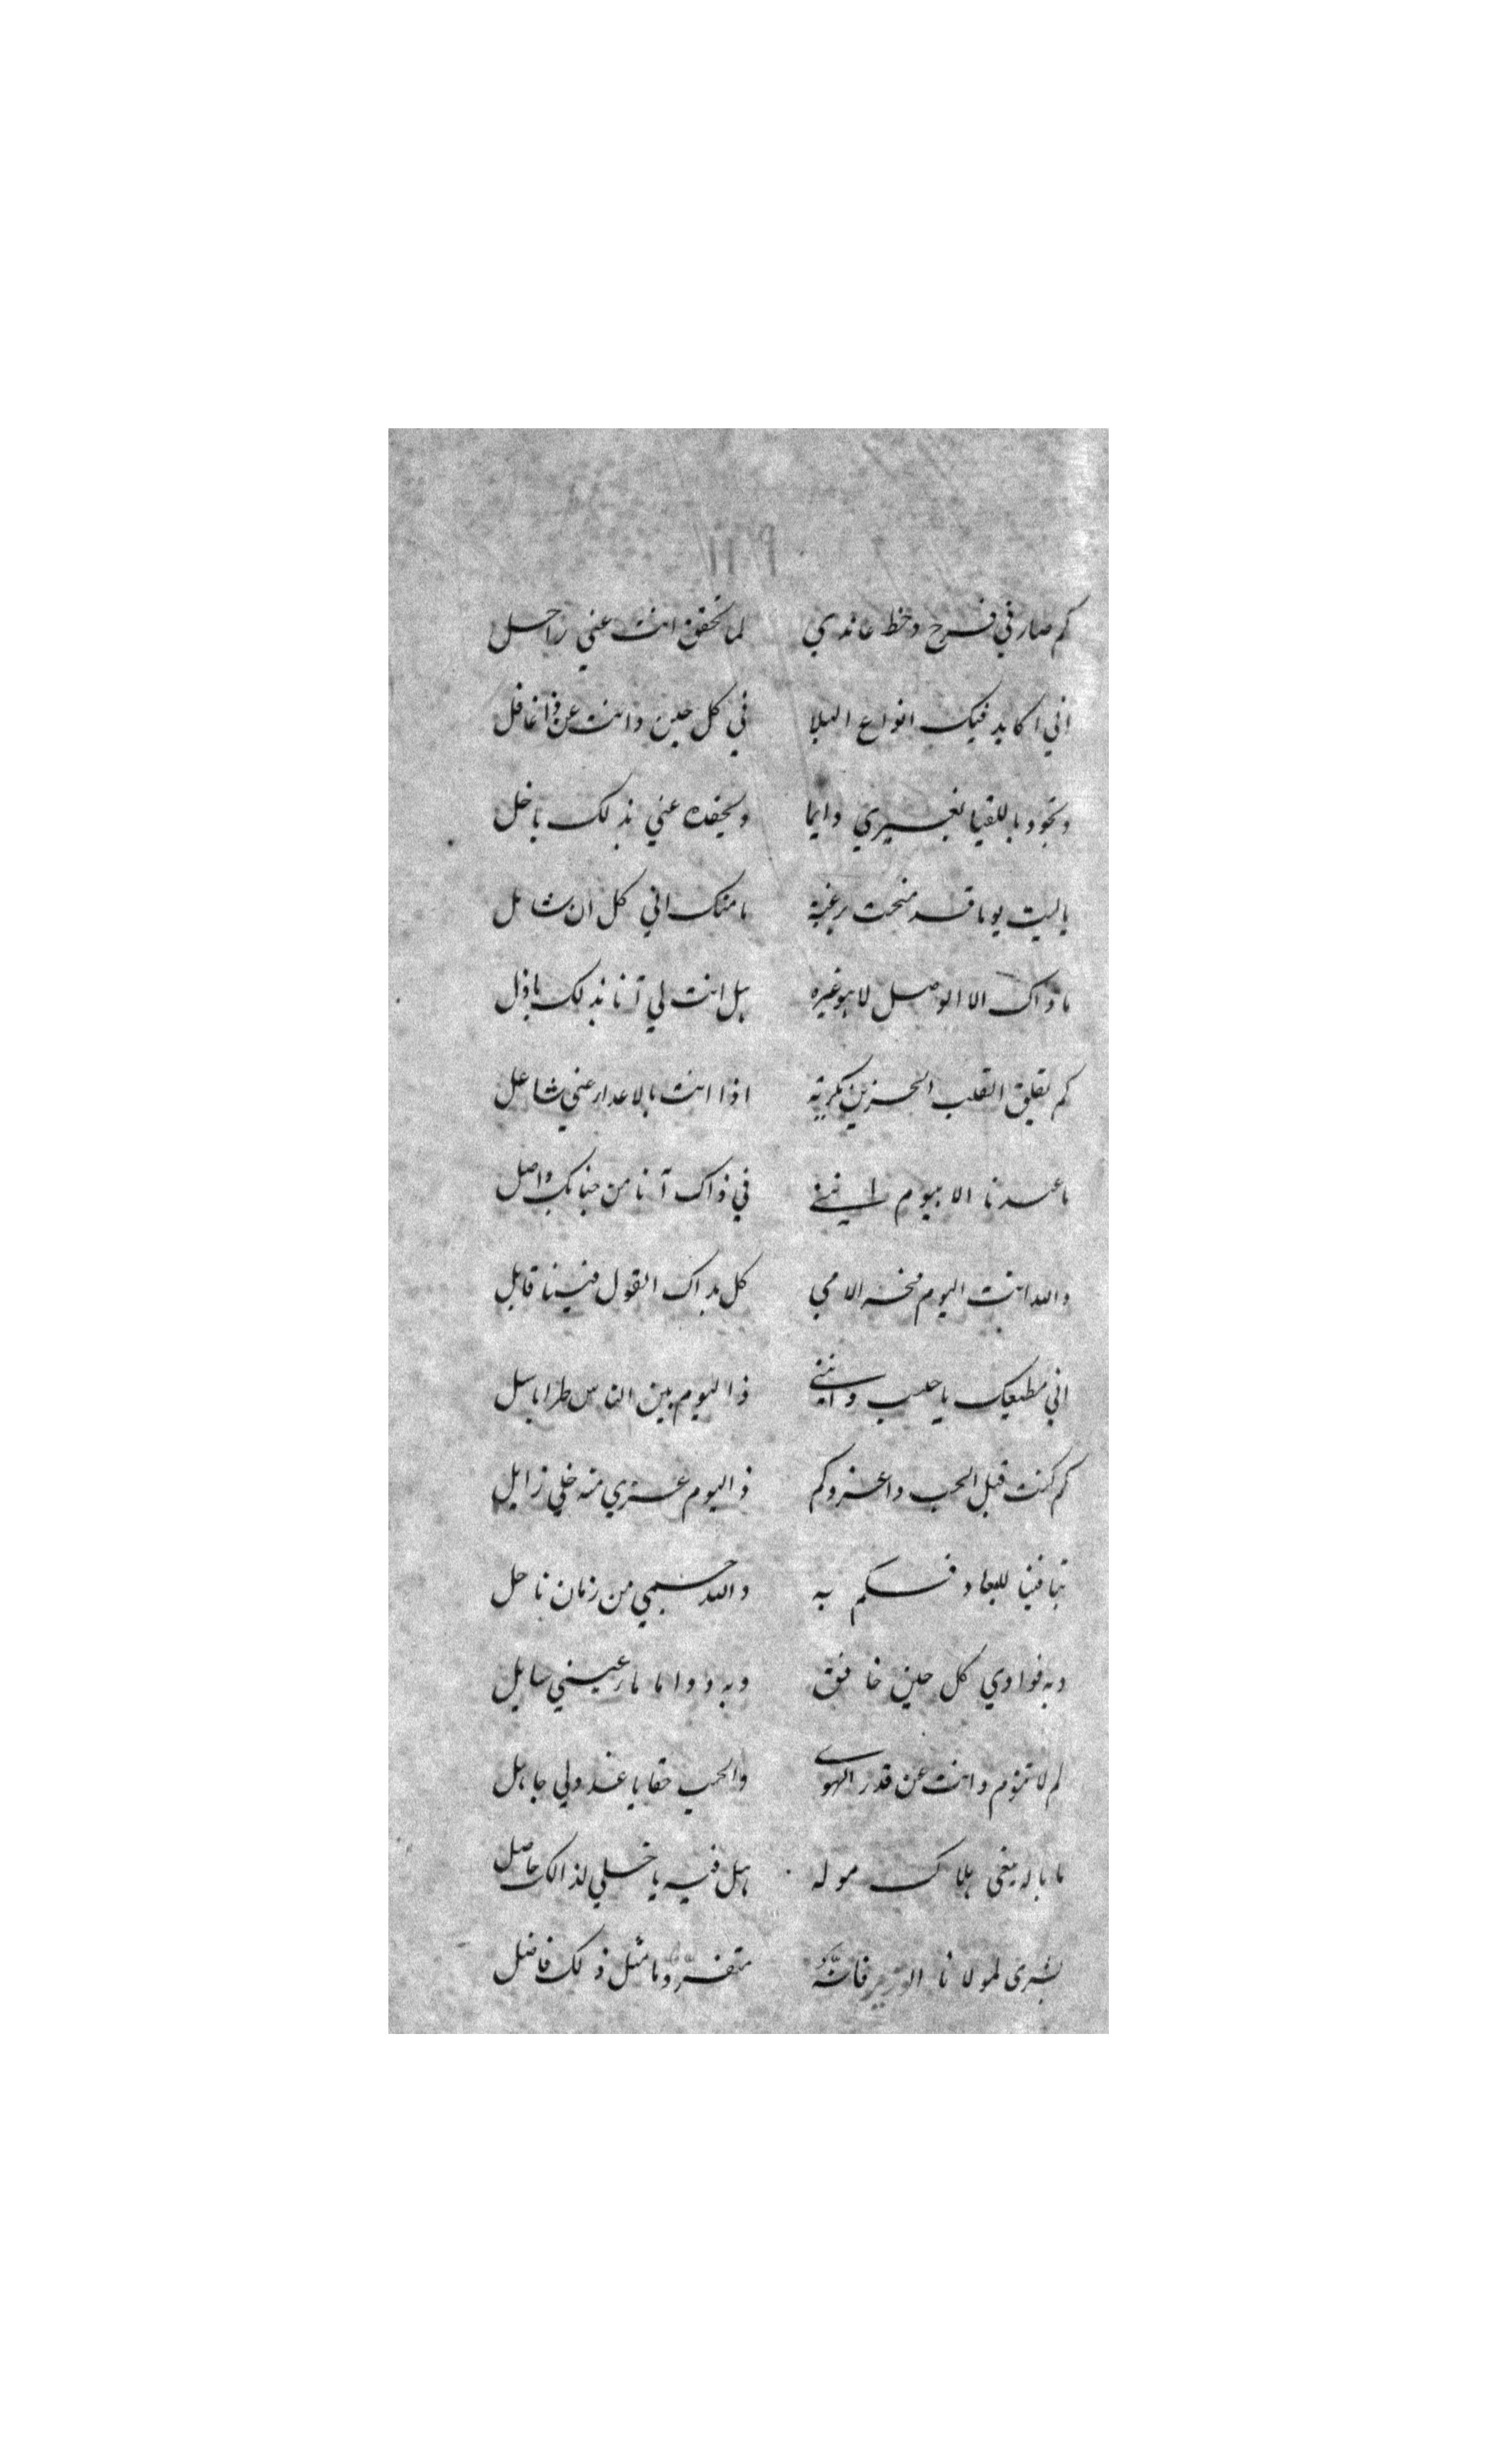 ١١٦٩
كم صار في فرح وحظ عاندي لما تحقق انت عني راحل
اني اكابد فيك انواع البلا في كل حين وانت عن ذا غافل
وتجود باللقيا لغيري دايما عني بذلك باخل
ياليت يوما قد منحت برغبة ما منك اني كل ان سايل
ما ذاك الا الوصل لا هو غيره هل انت لي آنا بذلك باذل
كم تقلق القلب الحزين بكربة اذا انت بالاعدا عني شاغل
ما عندنا الا بيوم انني في ذاك آنا من جنابك واصل
والله انت اليوم الامي كل بذاك القول فينا قايل
اني مطيعك يا حبيب وانني ذا اليوم بين الناس طرا باسل
كم كنت قبل الحب ذا عز وكم ذا اليوم عزي منه خلي زايل
تبا فينا للبعاد فكم به والله جسمي من زمان ناحل
وبه فوادي كل حين خافق وبه دواما مارعيني سايل
لم لا تروم وانت عن قدر الهوى والحب حقا يا عذولي جاهل
ما باله يبغي هلاك موله هل فيه يا خلي لذالك حاصل
بشرى لمولانا الوزير فانه متفرد ما مثل ذلك فاضل